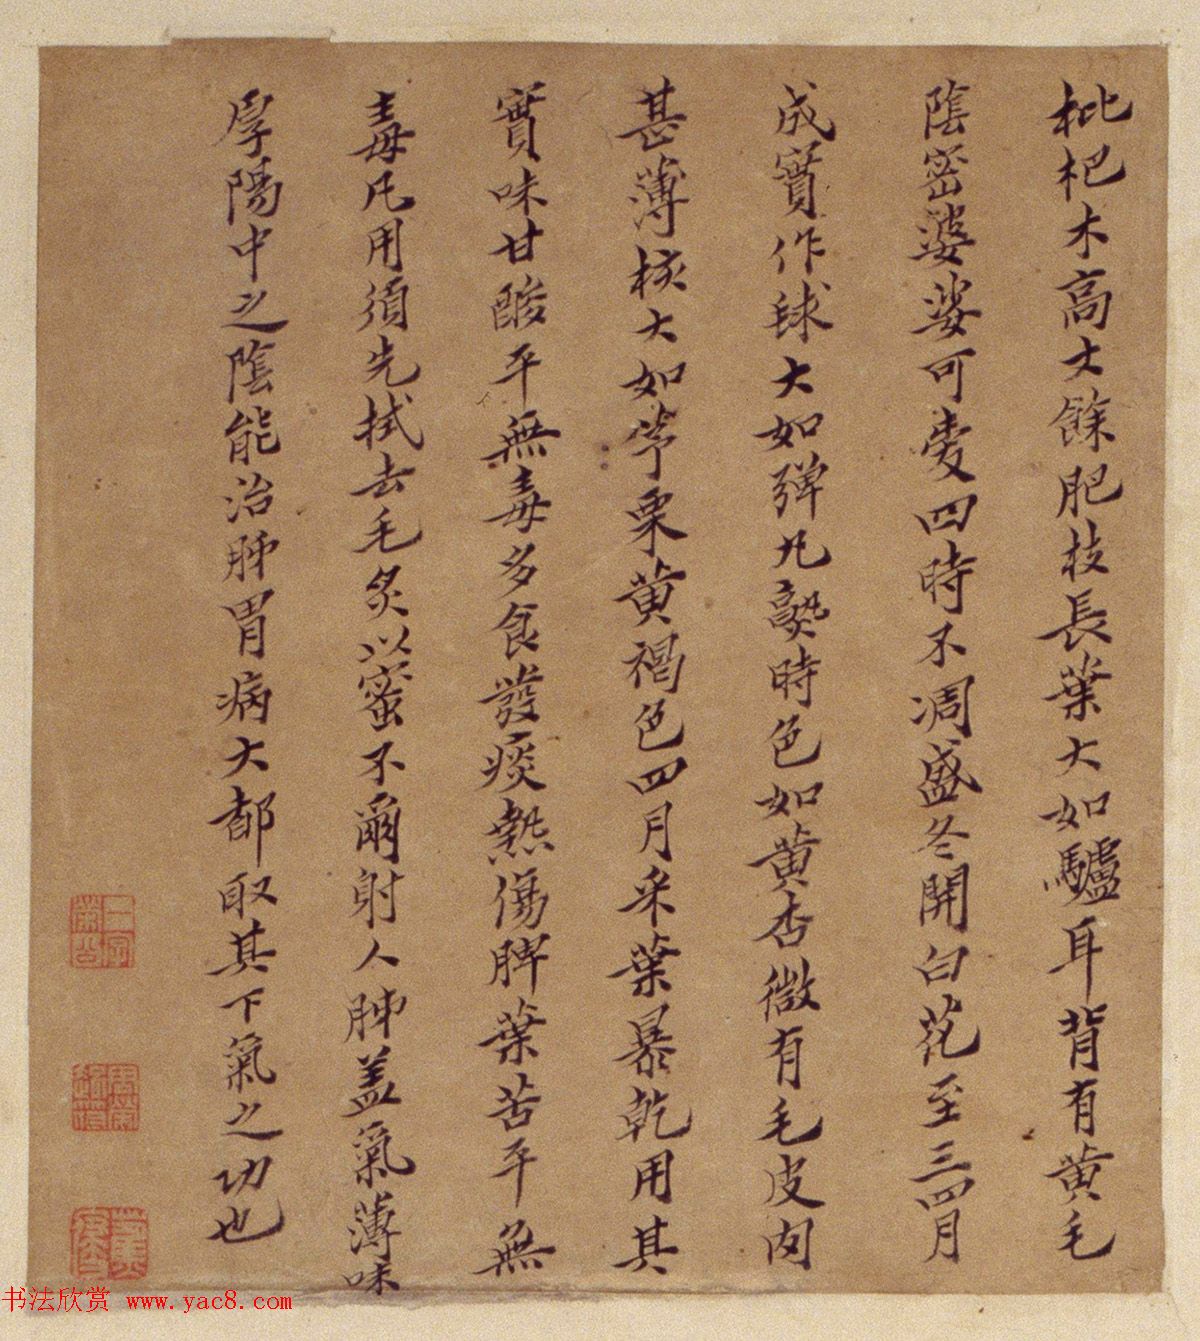 枇杷木高丈餘肥枝長葉大如驢耳背有黄毛
陰密婆娑可愛四時不凋盛冬開白花至三四月
成實作毬大如弾丸熟時色如黄杏微有毛皮肉
甚薄核大如茅栗黄褐色四月采葉暴乾用其
實味甘酸平無毒多食發痰熱傷脾葉苦平無
毒凡用須先拭去毛炙以蜜不爾射人肺盖氣薄味
厚陽中之陰能治肺胃病大都取其下氣之功也
书法欣赏 www.yac8.com